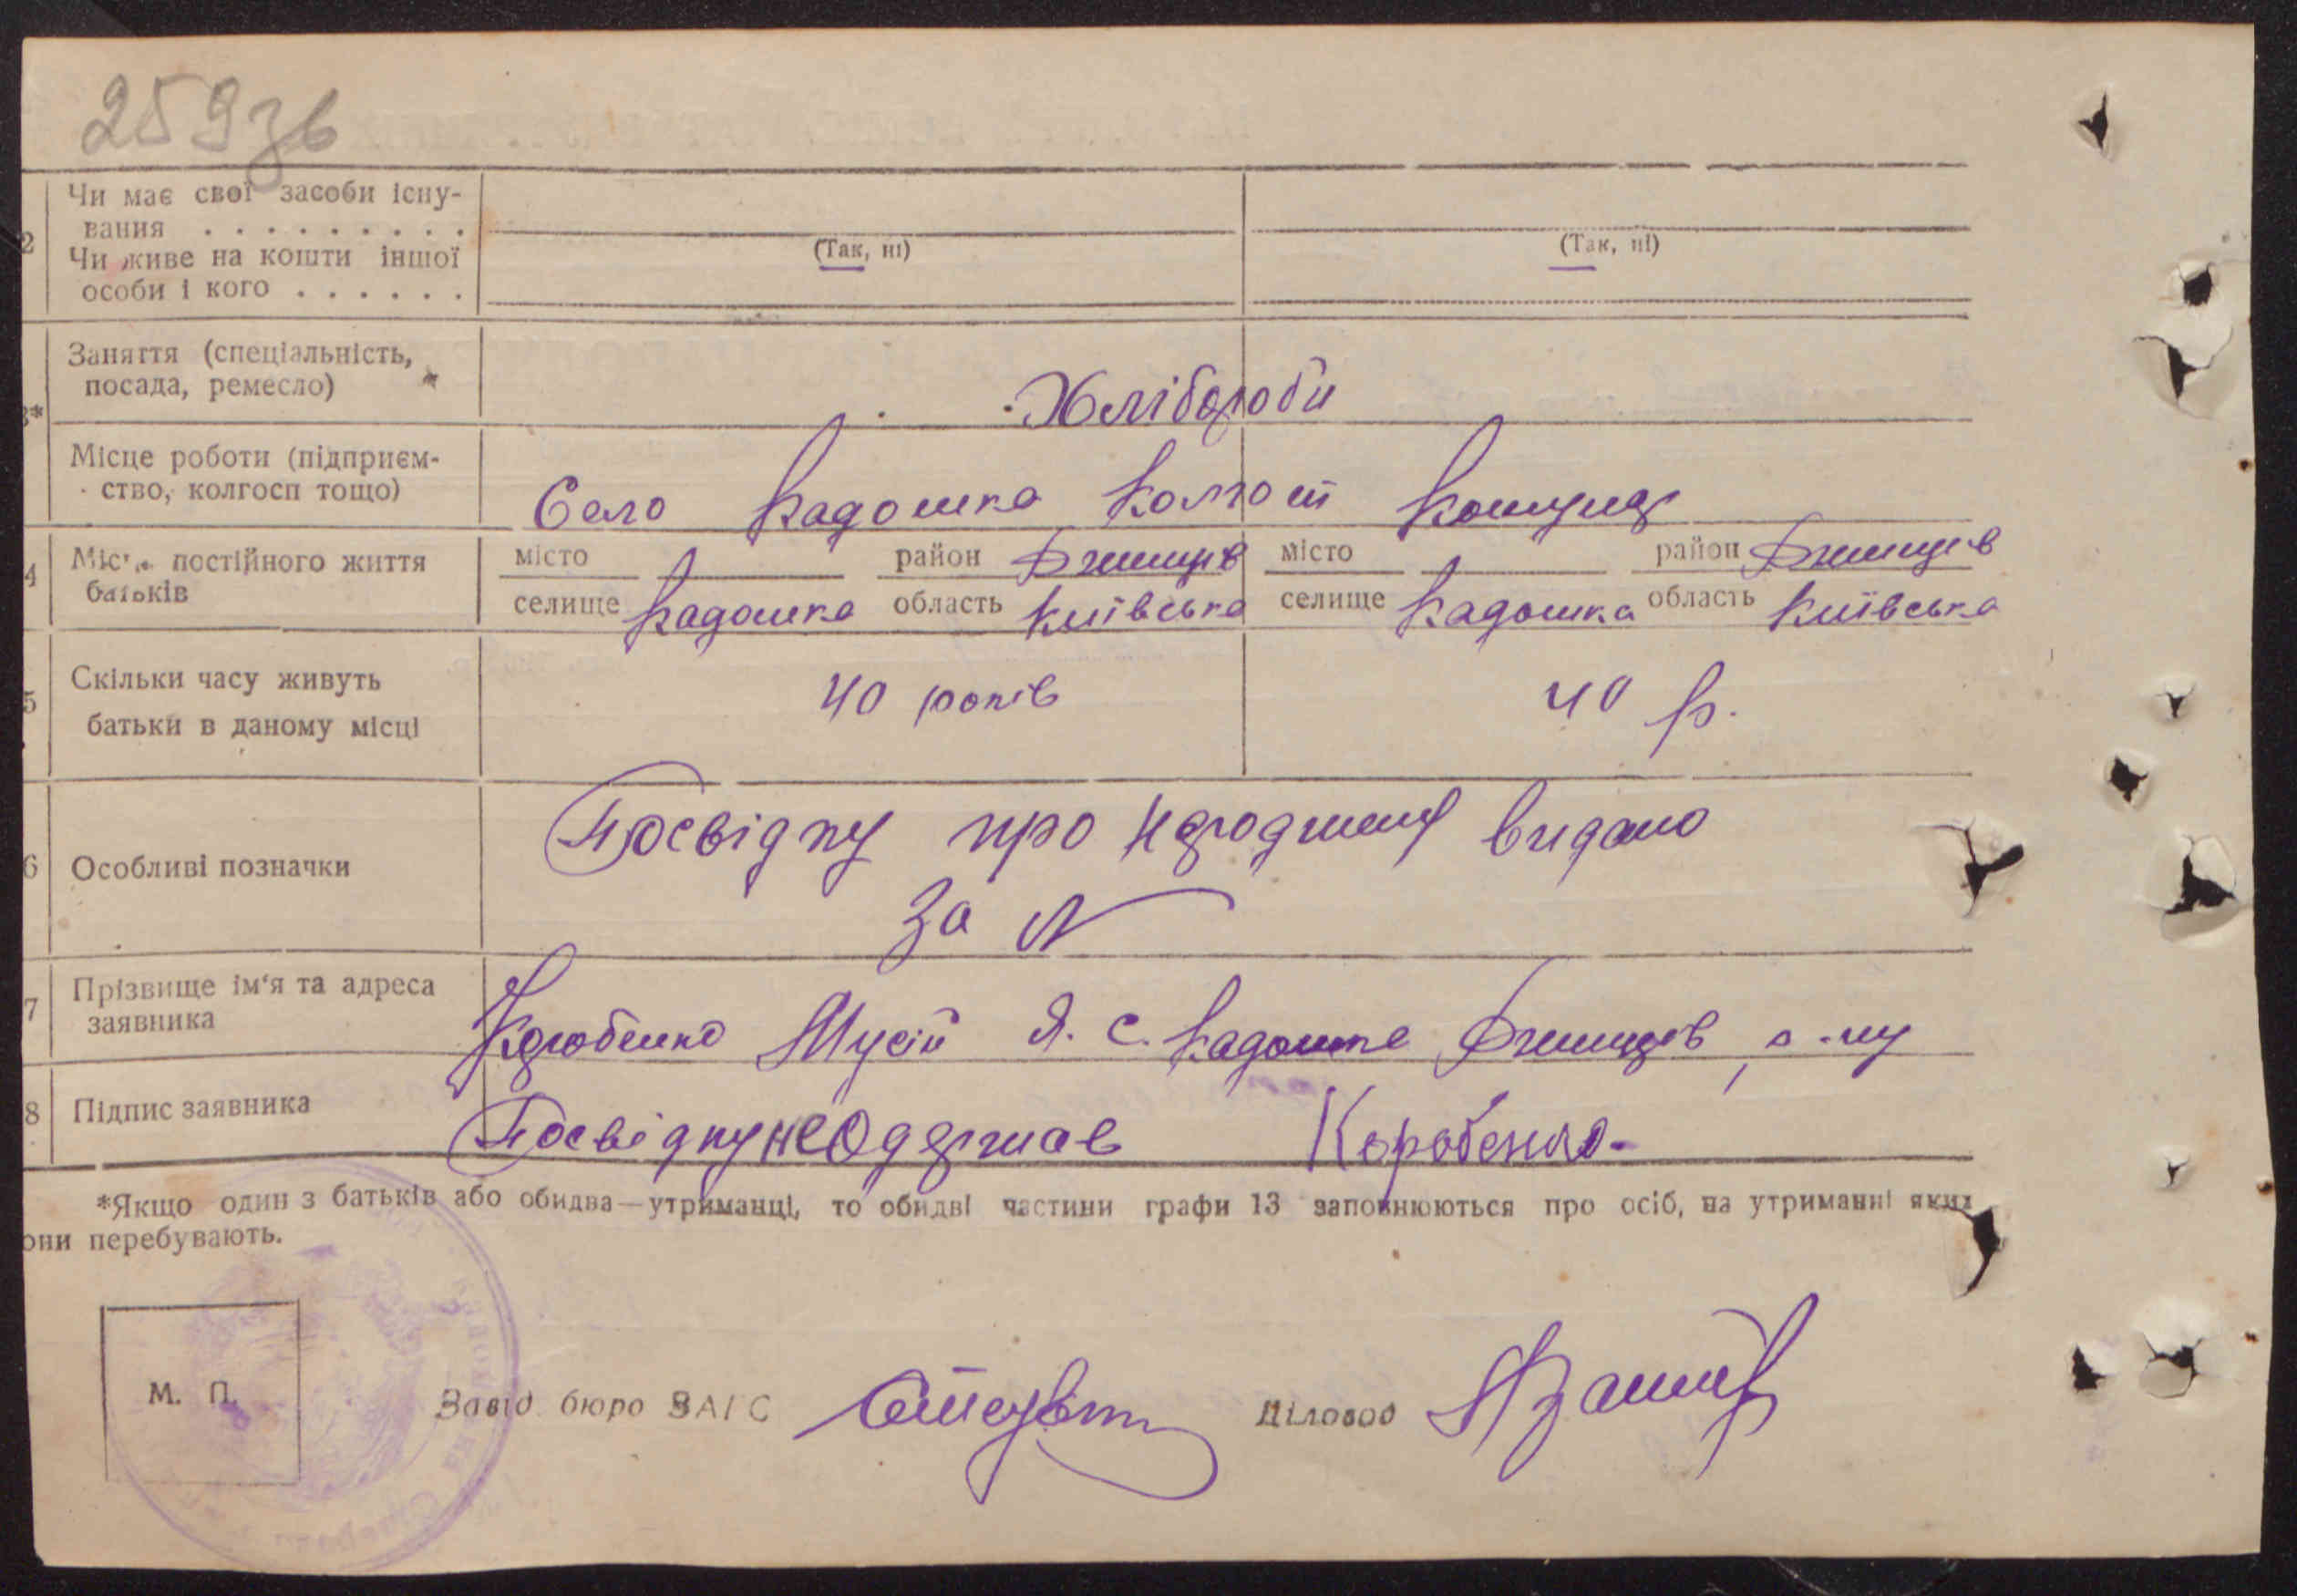 259зв
2 Чи має свої засоби існу-
вання . . . . . . . . .
(Так, ні) (Так, ні)
Чи живе на кошти іншої
особи і кого . . . . . .
3* Заняття (спеціальність,
посада, ремесло)
Хлібороби
Місце роботи (підприєм-
ство, колгосп тощо)
Село Кадошка Колгосп
4 Місце постійного життя
батьків
місто район місто район
селище Кадошка область Київська селище Кадошка область Київська
5 Скільки часу живуть
батьки в даному місці
40 років 40 р.
6 Особливі позначки
Посвідку про видано
За N
7 Прізвище ім'я та адреса
заявника
Мусій Я. с. Кадошка
8 Підпис заявника
Посвідку не Одержав Коробенко
*Якщо один з батьків або обидва—утриманці, то обидві частини графи 13 заповнюються про осіб, на утриманні яких
они перебувають.
М. П.
Завід бюро ЗАГС Діловод